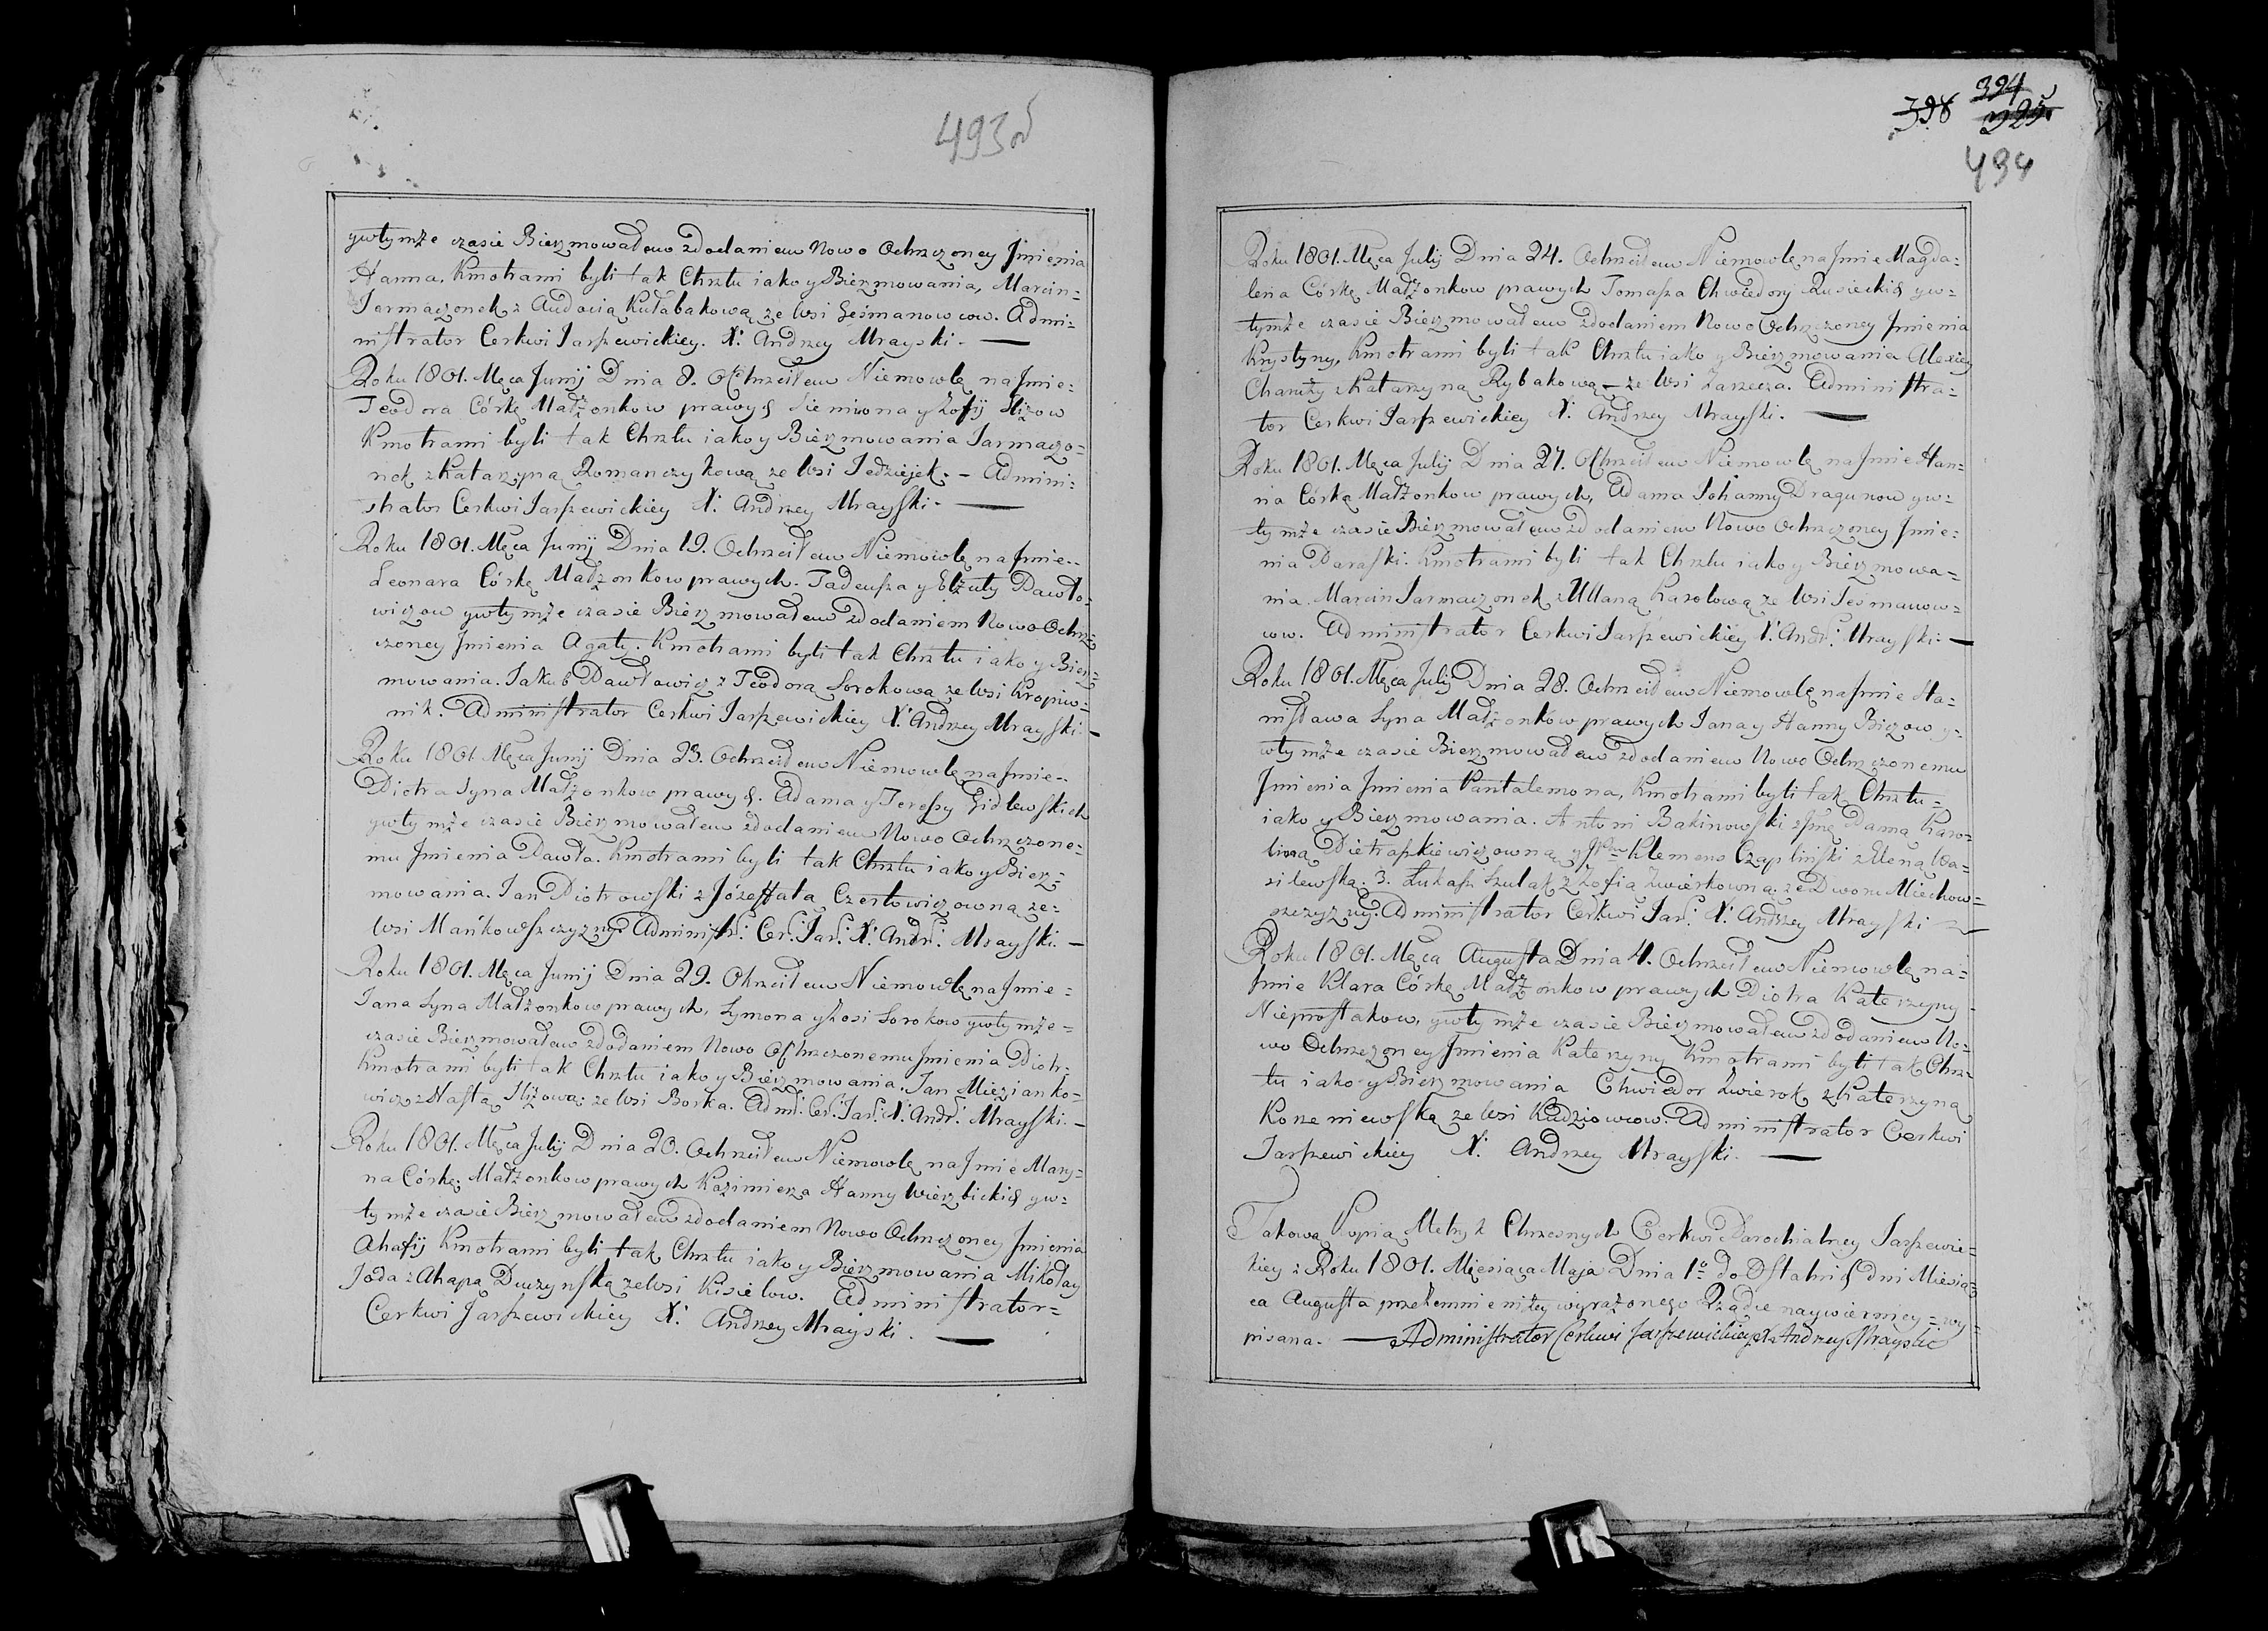 493об
ywtymże czasie Bierzmowałem zdodaniem Nowo Ochrzczoney Jmienia
Hanna, Kmotrami byli tak Chrztu iako y Bierzmowania, Marcin=
Jarmaczonek z Audocią Kułabakową ze Wsi Leśmanowcow. Admi=
nistrator Cerkwi Jarszewickiey. X: Andrzey Mrayski.
Roku 1801. Męca Junij Dnia 8. Ochrzciłem Niemowlę na Jmie=
Teodora Córkę Małżonkow prawych Siemiona y Zofij Hizow
Kmotrami byli tak Chrztu iako y Bierzmowania Jarmaczo=
nek z Katarzyną Romanczykową ze Wsi Jedziejek. - Admini=
strator Cerkwi Jarszewickiey X: Andrzey Mrayski.
Roku 1801. Męca Junij Dnia 19. Ochrzciłem Niemowlę na Jmie=
Leonara Córkę Małżonkow prawych. Tadeusza y Elżuty Pawło=
wiczow ywtymże czasie Bierzmowałem zdodaniem Nowo Ochrz=
czoney Jmienia Agaty. Kmotrami byli tak Chrztu iako y Bierz=
mowania. Jakub Pawłowicz z Teodorą Sorokową ze Wsi Kropiw=
nik. Administrator Cerkwi Jarszewickiey X: Andrzey Mrayski.
Roku 1801 Męca Junij Dnia 23. Ochrzciłem Niemowlę na Jmie=
Piotra Syna Małżonkow prawych. Adama y Teressy Gidlewskich
ywtymże czasie Bierzmowałem zdodaniem Nowo Ochrzczone=
mu Jmienia Pawła. Kmotrami byli tak Chrztu iako y Bierz=
mowania. Jan Piotrowski z Józeffata Czertowiczowną ze=
Wsi Mańkowszczyzny. Administr: Cer: Jar: X: Andr: Mrayski.
Roku 1801. Męca Junij Dnia 29. Ohrzciłem Niemowlę na Jmie=
Jana Syna Małżonkow prawych, Symona y Zosi Sorokow ywtymże=
czasie Bierzmowałem zdodaniem Nowo Ochrzczonemu Jmienia Piotr.
Kmotrami byli tak Chrztu iako y Bierzmowania. Jan Miezianko=
wicz z Nastą Hizową: ze Wsi Borka. Adm: Cer: Jar: X: Andr: Mrayski.
Roku 1801. Męca Julij Dnia 20. Ochrzciłem Niemowlę na Jmie Mary=
na Córkę. Małżonkow prawych Kazimierza Hanny Wierzbickich yw=
tymże czasie Bierzmowałem zdodaniem Nowo Ochrzczoney Jmienia
Ahafij Kmotrami byli tak Chrztu iako y Bierzmowania Mikołay
Joda z Ahapą Duszynską ze Wsi Kisielow. Administrator=
Cerkwi Jarszewickiey X: Andrzey Mrayski.
398 394
325
494
Roku 1801. Męca Julij Dnia 24. Ochrzciłem Niemowlę na Jmie Magda=
lena Córkę Małżonkow prawych Tomasza Chwiedory Rusieckich yw=
tymże czasie Bierzmowałem zdodaniem Nowo Ochrzczoney Jmienia
Krystyny, Kmotrami byli tak Chrztu iako y Bierzmowania Alexiey
z Katarzyną Rybakową - ze Wsi Zarzecza. Administra=
tor Cerkwi Jarszewickiey X: Andrzey Mrayski.
Roku 1801. Męca Julij Dnia 27. Ochrzciłem Niemowlę na Jmie Han=
na Córką Małżonkow prawych, Adama Johanny Dragunow yw=
tymże czasie Bierzmowałem zdodaniem Nowo Ochrzczoney Jmie=
nia Paraski. Kmotrami byli tak Chrztu iako y Bierzmowa=
nia. Marcin Jarmaczonek z Ullaną Karolową ze Wsi Leśmanow=
cow. Administrator Cerkwi Jarszewickiey X: Andr: Mrayski.
Roku 1801. Męca Julij Dnia 28. Ochrzciłem Niemowlę na Jmie Sta=
nisława Syna Małżonkow prawych Jana y Hanny Bizow y=
wtymże czasie Bierzmowałem zdodaniem Nowo Ochrzczonemu
Jmienia Jmienia Pantalemona, Kmotrami byli tak Chrztu=
iako y Bierzmowania. Antoni Bakinowski z Jmę Pamą Karo=
liną Pietraszkiewiczowną y Klemens Czapliński z Eleną Wa=
silewską. 3. Łukasz Szulak z Zofią Zwierkowną: ze Dworu Miechow=
szczyzny. Administrator Cerkwi Jar: X: Andrzey Mrayski
Roku 1801. Męca Augusta Dnia 4. Ochrzciłem Niemowlę na=
Jmie Klara Córkę Małżonkow prawych Piotra Katerzyny
Nieprostakow, ywtymże czasie Bierzmowałem zdodaniem No=
wo Ochrzczoney Jmienia Katerzyny Kmotrami byli tak Chrz=
tu iako y Bierzmowania Chwiedor Zwierok z Katerzyną
Korzeniewską ze Wsi Kudziowcow. Administrator Cerkwi
Jarszewickiey X: Andrzey Mrayski.
Takową Kopią Metryk Chrzesnych Cerkwi Parochialney Jarszewic=
kiey z Roku 1801. Miesiąca Maja Dnia 1º do Ostatnich dni Miesią=
ca Augusta przezemnie niżey wyrażonego Rządie naywierniey = wy=
pisana. — Administrator Cerkwi Jarszewickiey X: Andrzey Mrayski